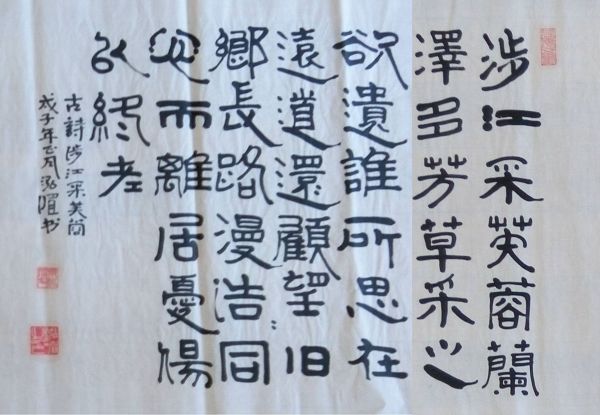 涉江采芙蓉蘭
澤多芳草采之
欲遺誰所思在
遠道還顧望旧
鄉長路漫浩:同
心而離居憂傷
以終老
古詩涉江采芙蓉
戊子年正月书